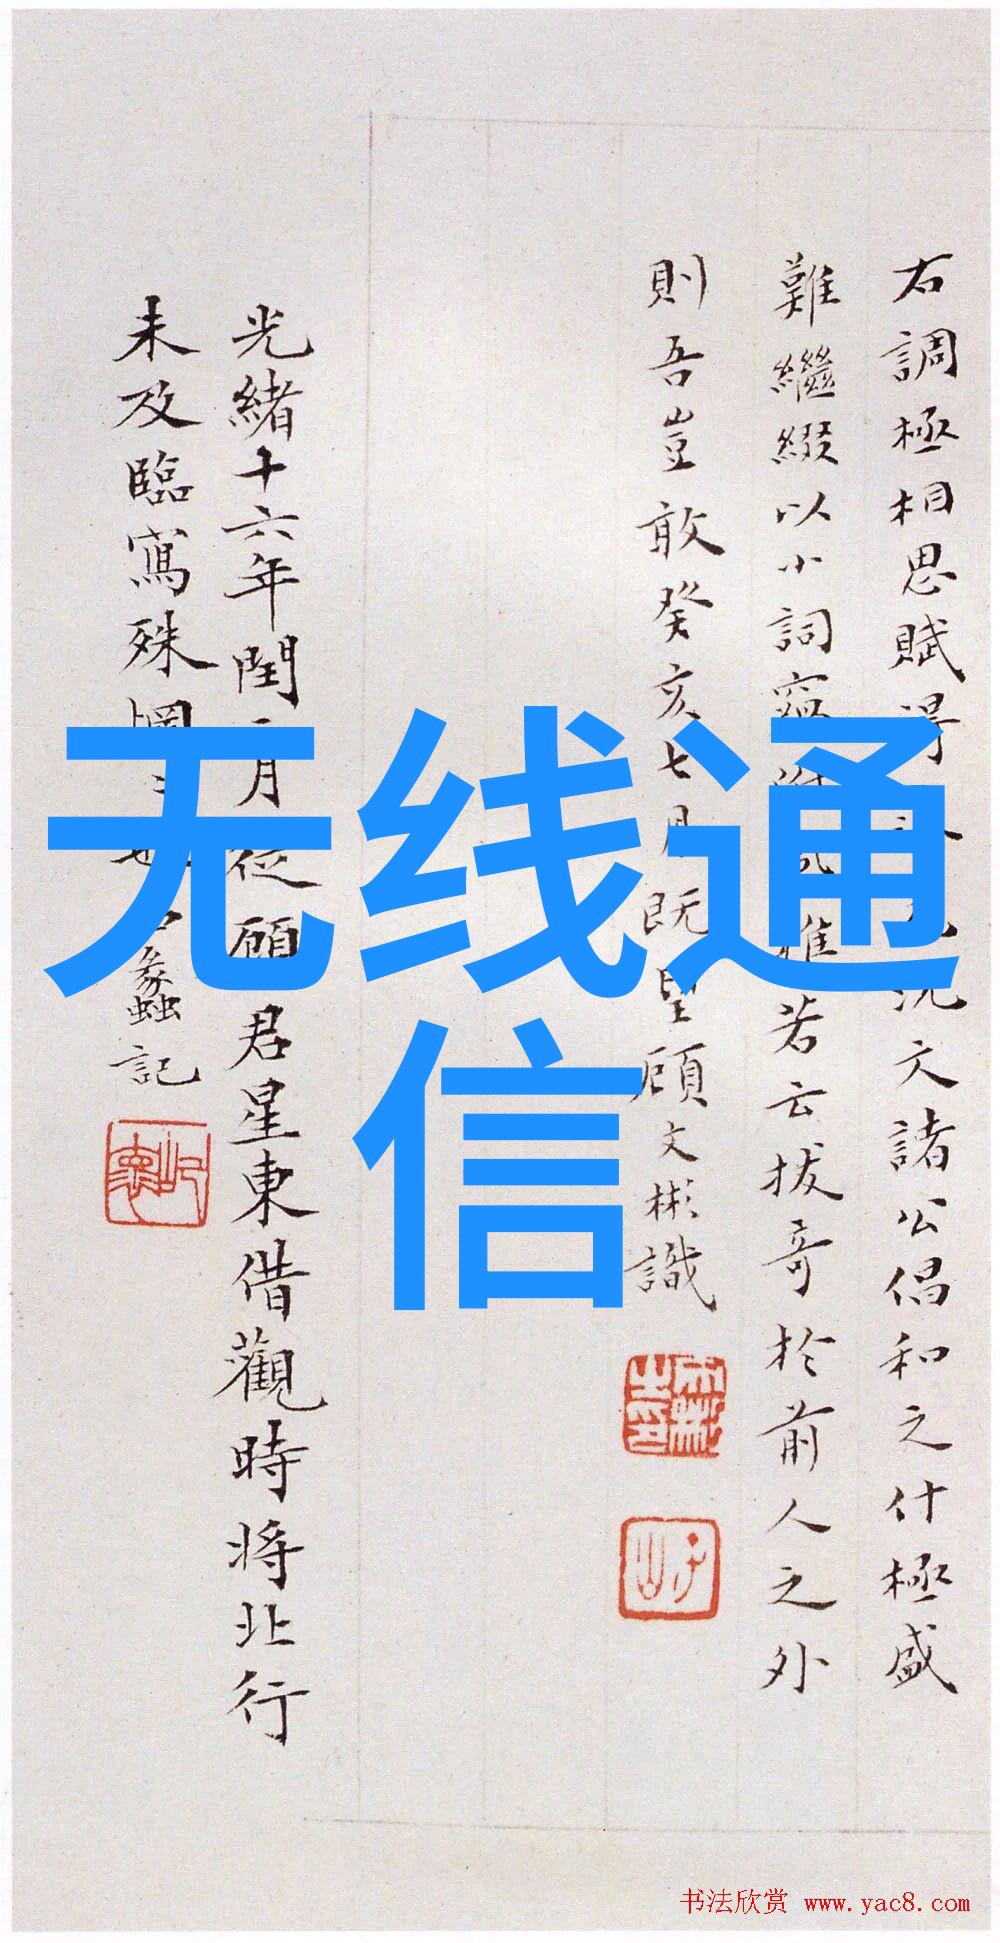 右調極相思賦得
沈文諸公倡和之什極盛
難繼綴以小詞
雅若云拔奇於前人之外
則吾豈敢癸亥七月既望顧文彬識
光緒十六年閏二月從顧君星東借觀時將北行
未及臨寫殊
記
无线通
信
书法欣赏 www.yac8.com